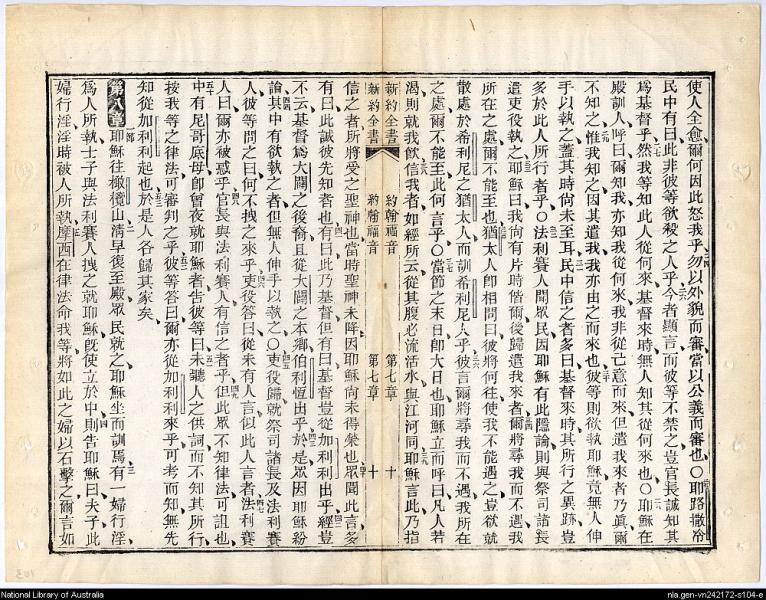 使人全愈爾何因此怒我乎勿以外貌而審當以公義而審也〇耶路撒冷
民中有曰此非彼等欲殺之人乎今者顯言而彼等不禁之豈官長誠知其
爲基督乎然我等知此人從何來基督來時無人知其從何來也〇耶穌在
殿訓人呼曰爾知我亦知我從何來我非從己意而來但遣我來者乃眞爾
不知之惟我知之因其遣我我亦由之而來也彼等則欲執耶穌竟無人伸
手以執之蓋其時尙未至耳民中信之者多曰基督來時其所行之異跡豈
多於此人所行者乎〇法利賽人聞眾民因耶穌有此隱論則與祭司諸長
遣吏役執之耶穌曰我尙有片時偕爾後歸遣我來者爾將尋我而不遇我
所在之處爾不能至也猶太人卽相問曰彼將何往使我不能遇之豈欲就
散處於希利尼之猶太人而訓希利尼人乎彼言爾將尋我而不遇我所在
之處爾不能至此何言乎〇當節之末日卽大日也耶穌立而呼曰凡人若
渴則就我飲信我者如經所云從其腹必流活水與江河同耶穌言此乃指
新約全書 約翰福音 第七章 十
新約全書 約翰福音 第七章 十
信之者所將受之聖神也當時聖神未降因耶穌尙未得榮也眾聞此言多
有曰此誠彼先知者也有曰此乃基督但有曰基督豈從加利利出乎經豈
不云基督爲大闢之後裔且從大闢之本鄉伯利恆出乎於是眾因耶穌紛
論其中有欲執之者但無人伸手以執之〇吏役歸就祭司諸長及法利賽
人彼等問之曰何不拽之來乎吏役答曰從未有人言似此人言者法利賽
人曰爾亦被惑乎官長與法利賽人有信之者乎但此眾不知律法可詛也
中有尼哥底母卽曾夜就耶穌者告彼等曰未聽人之供詞而不知其所行
按我等之律法可審判之乎彼等答曰爾亦從加利利來乎可考而知無先
知從加利利起也於是人各歸其家矣
第八章 一節 耶穌往橄欖山淸早復至殿眾民就之耶穌坐而訓焉有一婦行淫
爲人所執士子與法利賽人拽之就耶穌旣使立於中則告耶穌曰夫子此
婦行淫淫時被人所執摩西在律法命我等將如此之婦以石擊之爾言如
National Library of Australia
nla.gen-vn242172-s104-e